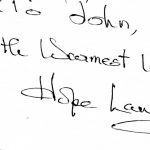 to John,
the Warmest
Hope Lan